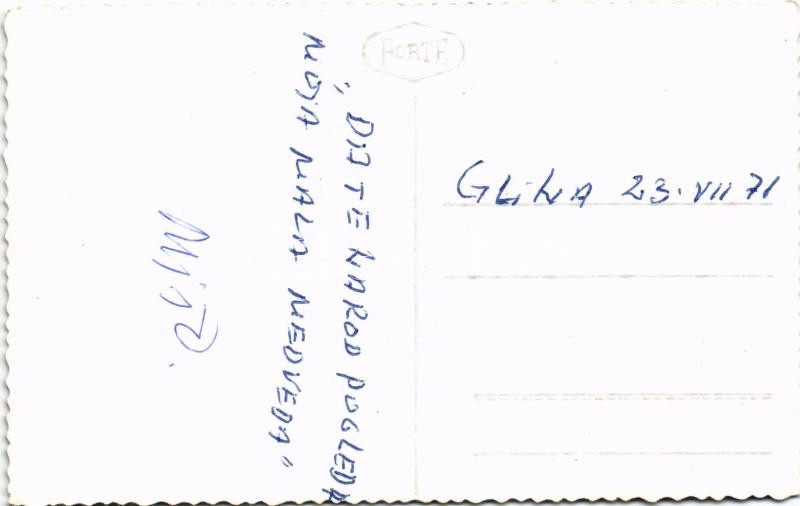 FORTE
„DA TE NAROD POGLEDA
MOJA MALA MEDVEDA“
GLINA 23. VII 71